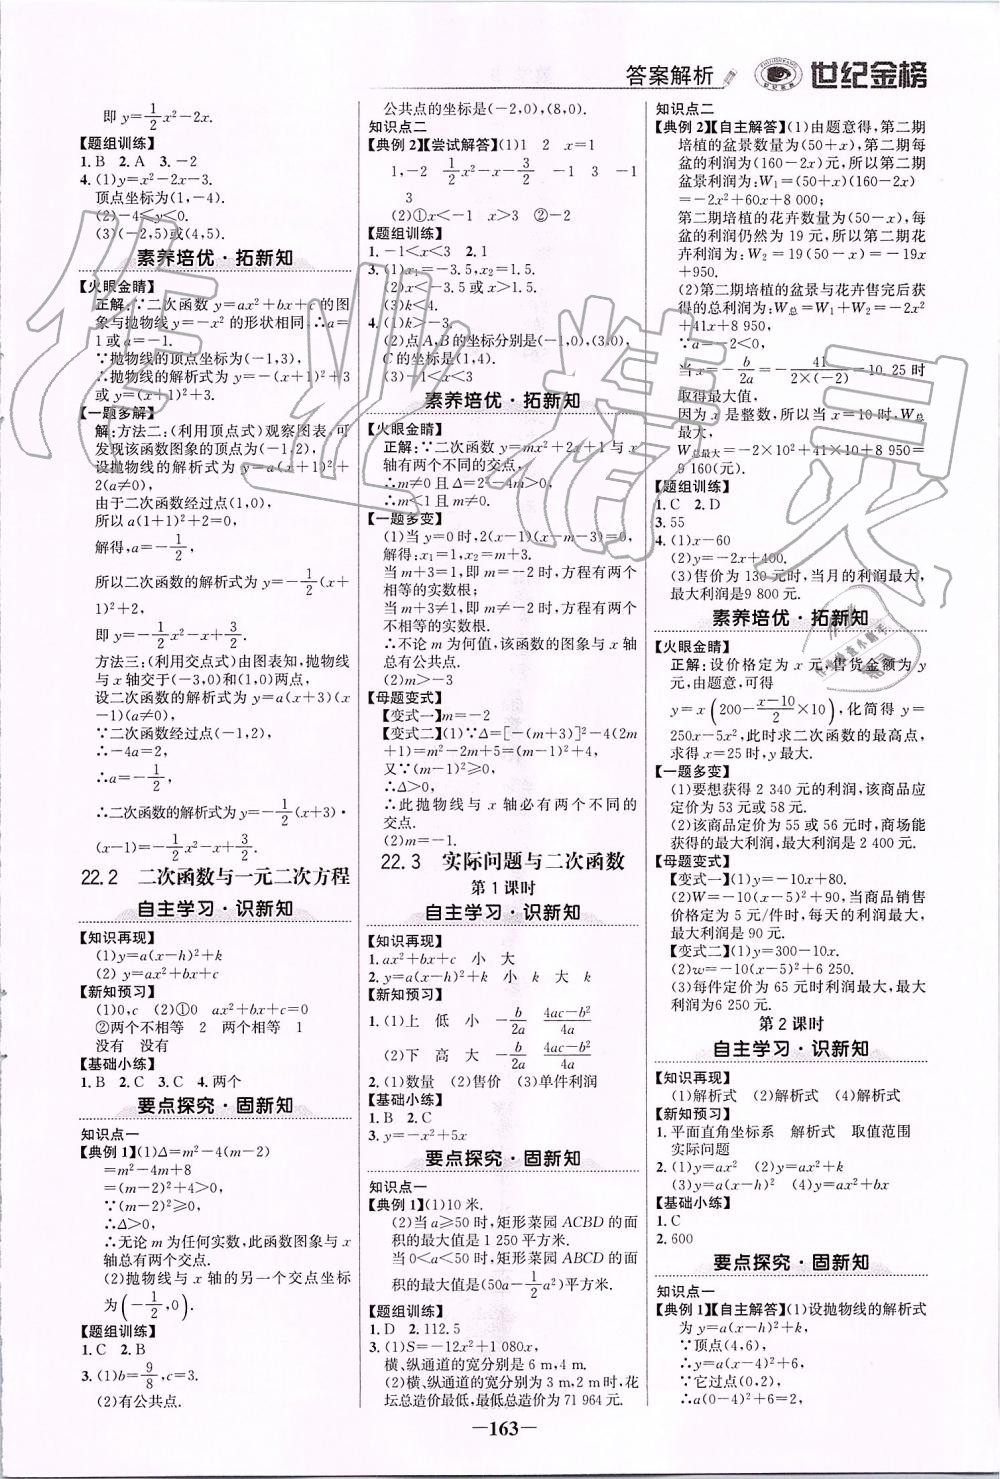 答案解析
世纪金榜
即 y=1/2x²-2x.
【题组训练】
1. B 2. A 3. -2
4. (1)y=x²-2x-3.
顶点坐标为(1,-4).
(2)-4<y<0.
(3)(-2,5)或(4,5).
素养培优·拓新知
【火眼金睛】
正解:∵二次函数 y=ax²+bx+c 的图
象与抛物线 y=-x² 的形状相同,∴a=
1 或 a=-1.
∵抛物线的顶点坐标为(-1,3),
∴抛物线的解析式为 y=-(x+1)²+3
或 y=(x+1)²+3.
【一题多解】
解:方法二:(利用顶点式)观察图表,可
发现该函数图象的顶点为(-1,2),
设抛物线的解析式为 y=a(x+1)²+
2(a≠0),
由于二次函数经过点(1,0),
所以 a(1+1)²+2=0,
解得,a=-1/2,
所以二次函数的解析式为 y=-1/2(x+
1)²+2,
即 y=-1/2x²-x+3/2.
方法三:(利用交点式)由图表知,抛物线
与 x 轴交于(-3,0)和(1,0)两点,
设二次函数的解析式为 y=a(x+3)(x
-1)(a≠0),
∵二次函数经过点(-1,2),
∴-4a=2,
∴a=-1/2,
∴二次函数的解析式为 y=-1/2(x+3)·
(x-1)=-1/2x²-x+3/2.
22.2 二次函数与一元二次方程
自主学习·识新知
【知识再现】
(1)y=a(x-h)²+k
(2) y=ax²+bx+c
【新知预习】
(1)0,c (2)①0 ax²+bx+c=0
②两个不相等 2 两个相等 1
没有 没有
【基础小练】
1. B 2. C 3. C 4. 两个
要点探究·固新知
知识点一
【典例 1】(1)Δ=m²-4(m-2)
=m²-4m+8
=(m-2)²+4>0,
∵(m-2)²≥0,
∴Δ>0,
∴无论 m 为任何实数,此函数图象与 x
轴总有两个交点.
(2)抛物线与 x 轴的另一个交点坐标
为(-1/2,0).
【题组训练】
1. C 2. B
3. (1)b=9/8,c=3.
(2)有公共点.
公共点的坐标是(-2,0),(8,0).
知识点二
【典例 2】【尝试解答】(1)1 2 x=1
1,-2 1/2x²-x-3/2 -1 3 -1
3
(2)①x<-1 x>3 ②-2
【题组训练】
1. -1<x<3 2. 1
3. (1)x₁=-3.5,x₂=1.5.
(2)x<-3.5 或 x>1.5.
(3)k<4.
4. (1)k>-3.
(2)点 A,B 的坐标分别是(-1,0),(3,0),
C 的坐标是(1,4).
(3)-1<x<3
素养培优·拓新知
【火眼金睛】
正解:∵二次函数 y=mx²+2x+1 与 x
轴有两个不同的交点,
∴m≠0 且 Δ=2²-4m>0,
∴m<1 且 m≠0.
【一题多变】
(1)当 y=0 时,2(x-1)(x-m-3)=0,
解得:x₁=1,x₂=m+3.
当 m+3=1,即 m=-2 时,方程有两个
相等的实数根;
当 m+3≠1,即 m≠-2 时,方程有两个
不相等的实数根.
∴不论 m 为何值,该函数的图象与 x 轴
总有公共点.
(2)m>-3
【母题变式】
【变式一】m=-2
【变式二】(1)∵Δ=[-(m+3)]²-4(2m
+1)=m²-2m+5=(m-1)²+4,
又∵(m-1)²≥0,
∴Δ>0,
∴此抛物线与 x 轴必有两个不同的
交点.
(2)m=-1.
22.3 实际问题与二次函数
第 1 课时
自主学习·识新知
【知识再现】
1. ax²+bx+c 小 大
2. y=a(x-h)²+k 小 k 大 k
【新知预习】
1. (1)上 低 小 -b/2a (4ac-b²)/4a
(2)下 高 大 -b/2a (4ac-b²)/4a
2. (1)数量 (2)售价 (3)单件利润
【基础小练】
1. B 2. C
3. y=-x²+5x
要点探究·固新知
知识点一
【典例 1】(1)10 米.
(2)当 a≥50 时,矩形菜园 ACBD 的面
积的最大值是 1 250 平方米.
当 0<a<50 时,矩形菜园 ABCD 的面
积的最大值是(50a-1/2a²)平方米.
【题组训练】
1. D 2. 112.5
3. (1)S=-12x²+1 080x.
横、纵通道的宽分别是 6 m,4 m.
(2)横、纵通道的宽分别是 3 m,2 m 时,花
坛总造价最低,最低总造价为 71 964 元.
知识点二
【典例 2】【自主解答】(1)由题意得,第二期
培植的盆景数量为(50+x),第二期每
盆的利润为(160-2x)元,所以第二期
盆景利润为:W₁=(50+x)(160-2x)
=-2x²+60x+8 000;
第二期培植的花卉数量为(50-x),第二
期的利润仍然为 19 元,所以第二期花
卉利润为:W₂=19(50-x)=-19x
+950.
(2)第二期培植的盆景与花卉售完后获
得的总利润为:W总=W₁+W₂=-2x²
+41x+8 950,
∵a=-2<0,
当 x=-b/2a=-41/(2×(-2))=10.25 时
取得最大值,
因为 x 是整数,所以当 x=10 时,W总
最大,
W总最大=-2×10²+41×10+8 950=
9 160(元).
【题组训练】
1. C 2. D
3. 55
4. (1)x-60
(2)y=-2x+400.
(3)售价为 130 元时,当月的利润最大,
最大利润是9 800 元.
素养培优·拓新知
【火眼金睛】
正解:设价格定为 x 元,售货金额为 y
元,由题意,可得
y=x(200-(x-10)/2×10),化简得 y=
250x-5x²,此时求二次函数的最高点,
求得 x=25 时,y 最大.
【一题多变】
(1)要想获得 2 340 元的利润,该商品应
定价为 53 元或 58 元.
(2)该商品定价为 55 或 56 元时,商场能
获得的最大利润,最大利润是 2 400 元.
【母题变式】
【变式一】(1)y=-10x+80.
(2)W=-10(x-5)²+90,当商品销售
价格定为 5 元/件时,每天的利润最大,
最大利润是 90 元.
【变式二】(1)y=300-10x.
(2)w=-10(x-5)²+6 250.
(3)每件定价为 65 元时利润最大,最大
利润为6 250 元.
第 2 课时
自主学习·识新知
【知识再现】
(1)解析式 (2)解析式 (4)解析式
【新知预习】
1. 平面直角坐标系 解析式 取值范围
实际问题
2. (1)y=ax² (2)y=ax²+k
(3)y=a(x-h)²+k (4)y=ax²+bx
【基础小练】
1. C
2. 600
要点探究·固新知
知识点一
【典例 1】【自主解答】(1)设抛物线的解析式
为 y=a(x-h)²+k,
∵顶点(4,6),
∴y=a(x-4)²+6,
∵它过点(0,2),
∴a(0-4)²+6=2,
—163—
作业精灵